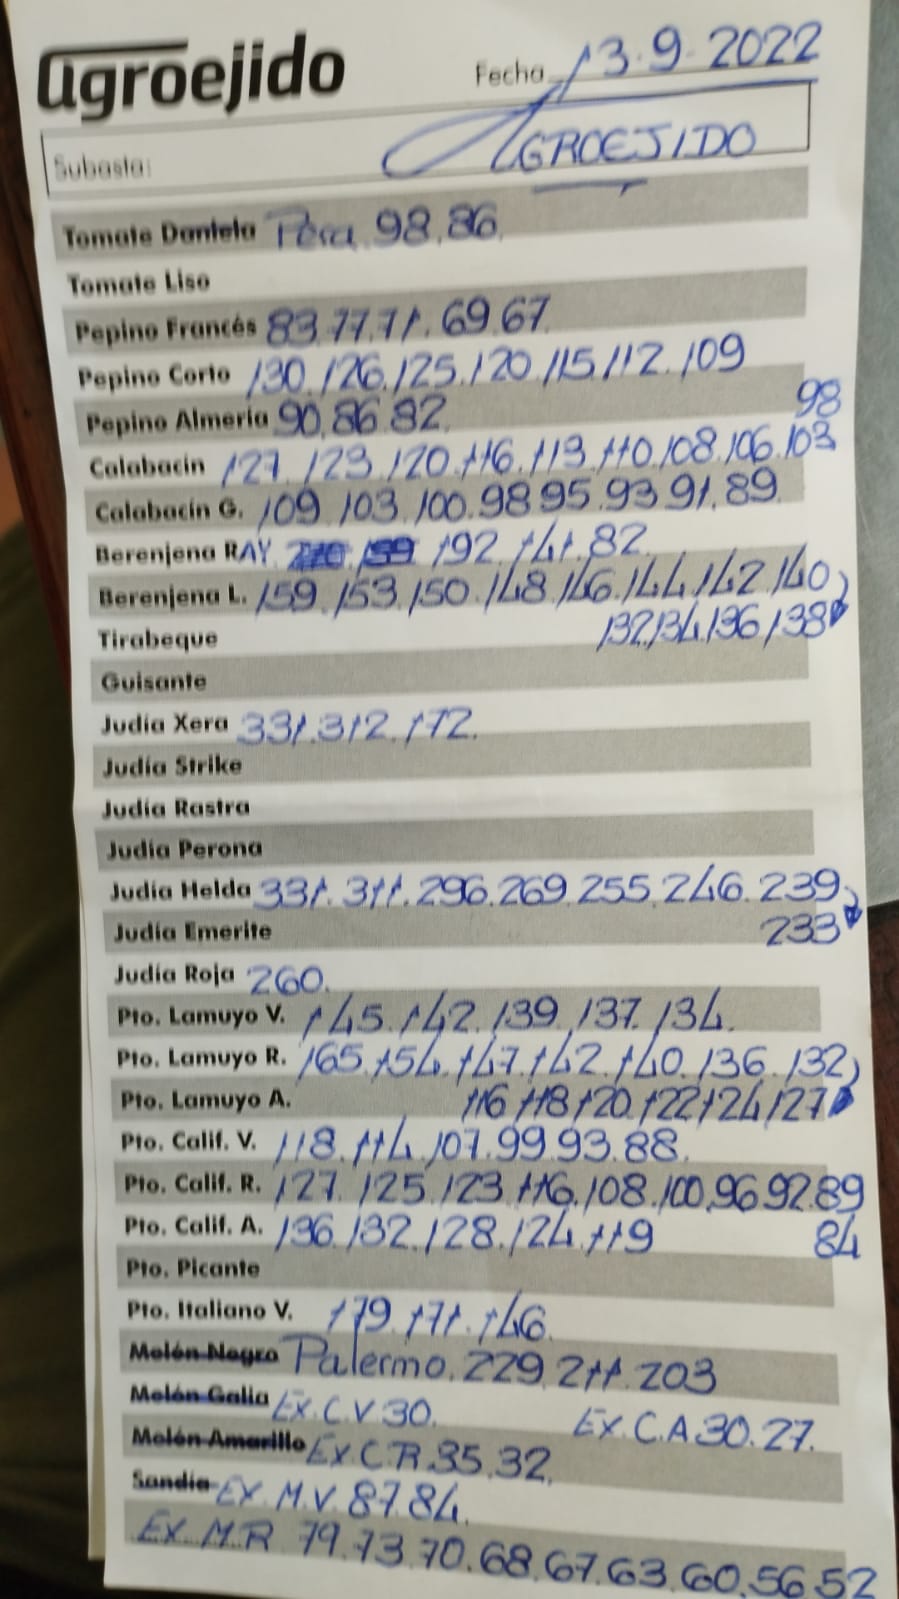 agroejido Fecha 13.9.2022
Subasta: AGROEJIDO
Tomate Daniela Pera 98.86.
Tomate Liso
Pepino Francés 83.77.71.69.67.
Pepino Corto 130.126.125.120.115.112.109
Pepino Almería 90.86.82. 98
Calabacín 127.123.120.116.113.110.108.106.103
Calabacín G. 109.103.100.98.95.93.91.89.
Berenjena RAY. 192.141.82.
Berenjena L. 159.153.150.148.146.144.142.140
Tirabeque 132.134.136.138
Guisante
Judía Xera 331.312.172.
Judía Strike
Judía Rastra
Judía Perona
Judía Helda 331.311.296.269.255.246.239
Judía Emerite 233
Judía Roja 260.
Pto. Lamuyo V. 145.142.139.137.134.
Pto. Lamuyo R. 165.154.147.142.140.136.132
Pto. Lamuyo A. 116.118.120.122.124.127
Pto. Calif. V. 118.114.107.99.93.88.
Pto. Calif. R. 127.125.123.116.108.100.96.92.89
Pto. Calif. A. 136.132.128.124.119 84
Pto. Picante
Pto. Italiano V. 179.171.146.
Melón Negro Palermo.229.211.203
Melón Galia Ex.C.V 30. Ex.C.A 30.27.
Melón Amarillo Ex C.R.35.32.
Sandía EX.M.V.87.84.
EX.M.R 79.73.70.68.67.63.60.56.52